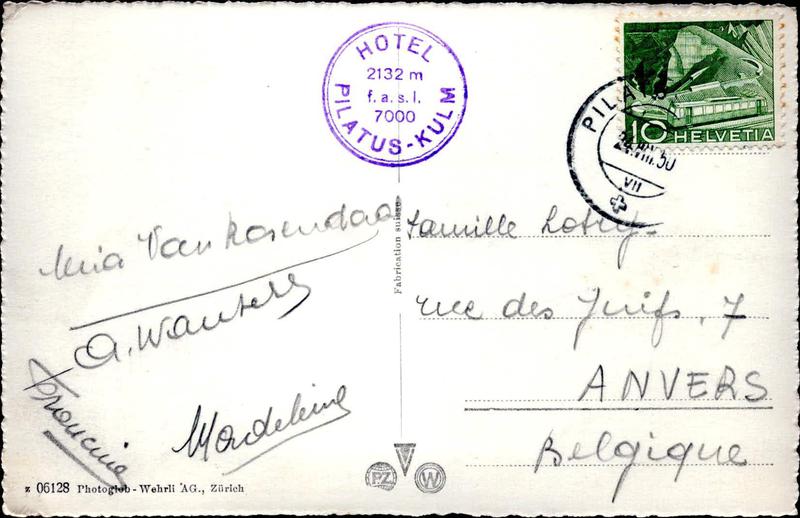 HOTEL
2132 m
f.a.s.l.
7000
PILATUS-KULM
PILATUS
24.VIII.50
VII
10 HELVETIA
Mia Van Rosendaal
A. Wauters
Francine
Madeleine
Fabrication suisse
Famille
rue des Juifs, 7
ANVERS
Belgique
P.Z. W
z 06128 Photoglob-Wehrli AG., Zürich